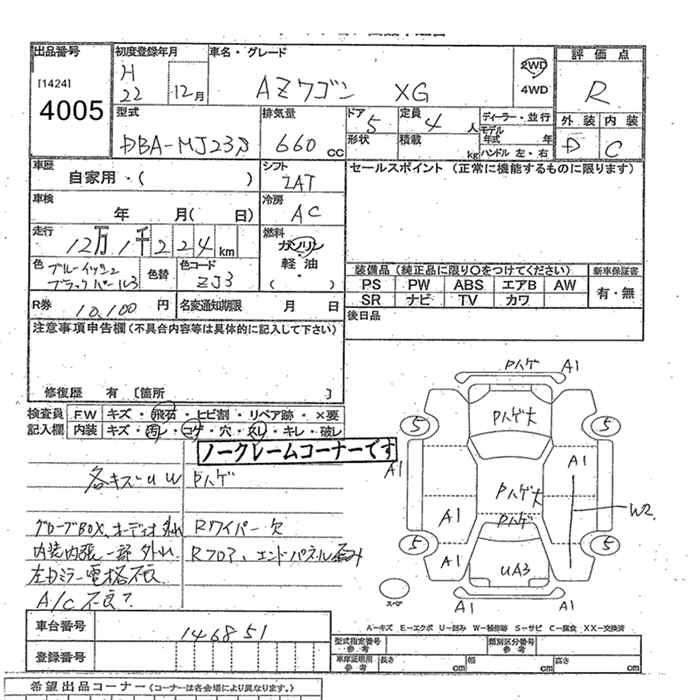 出品番号
[1424]
4005
初度登録年月
H
22 12月
車名・グレード
AZワゴン XG
2WD
4WD
評価点
R
外装 内装
D C
型式
DBA-MJ23S
排気量
660cc
ドア
5
定員
4人
形状
積載
kg
ディーラー・並行
モデル年式 年
ハンドル 左・右
車歴
自家用・( )
シフト
IAT
セールスポイント(正常に機能するものに限ります)
車検
年 月( 日)
冷房
AC
走行
12万1千224km
燃料
ガソリン
軽油
( )
色
ブルーイッシュ
ブラックパール3
色替
色コード
ZJ3
装備品(純正品に限り○をつけてください)
新車保証書
PS PW ABS エアB AW
有・無
SR ナビ TV カワ
R券
10,100円
名変通知期限 月 日
後日品
注意事項申告欄(不具合内容等は具体的に記入して下さい)
修復歴 有〔箇所 〕
検査員 F.W キズ・飛石・ヒビ割・リペア跡・×要
記入欄 内装 キズ・汚レ・コゲ・穴・スレ・キレ・破レ
ノークレームコーナーです
各キズUW Pハゲ
グローブBOX、オーディオ外れ Rワイパー欠
内装内張一部外れ Rフロア、エンドパネル歪み
左Dミラー電格不良
A/C不良?
Pハゲ A1
Pハゲ大
5 5
A1 A1
Pハゲ大
Pハゲ
A1 W2
5 5
A1 A1
UA3
A1 A1
スペア
A-キズ E-エクボ U-凹み W-補修跡 S-サビ C-腐食 XX-交換済
車台番号
146851
登録番号
型式指定番号 参考
類別区分番号 参考
車庫証明用 参考
長さ cm 幅 cm 高さ cm
希望出品コーナー(コーナーは各会場により異なります。)